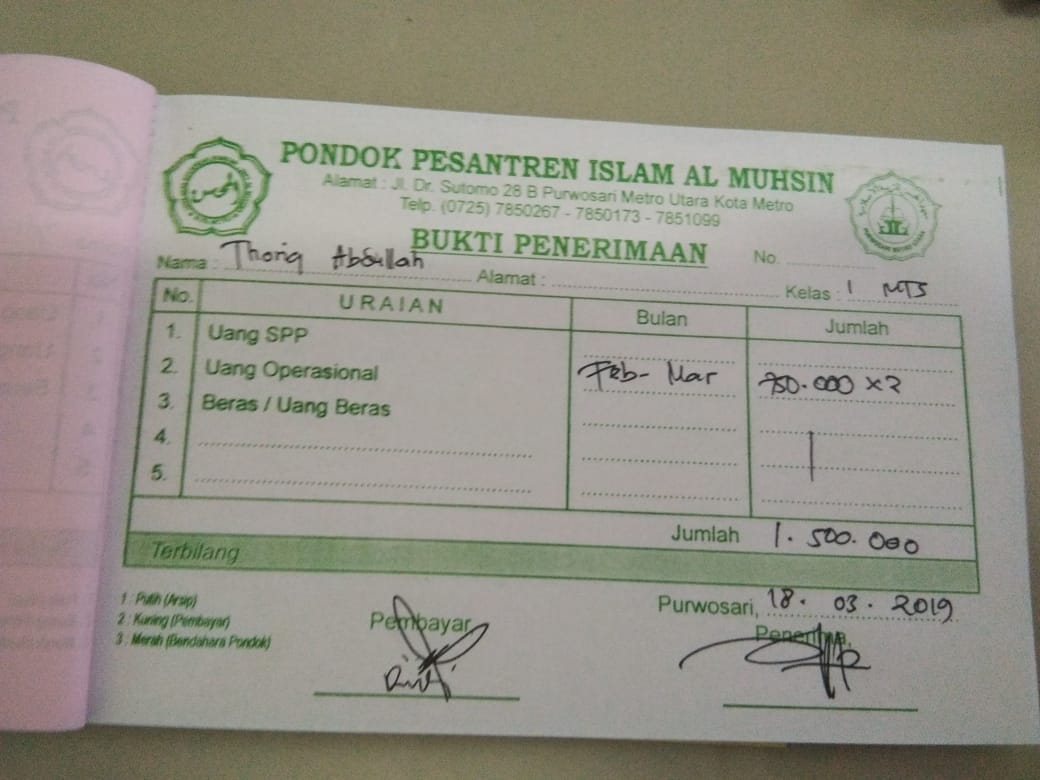 PONDOK PESANTREN ISLAM AL MUHSIN
Alamat : Jl. Dr. Sutomo 28 B Purwosari Metro Utara Kota Metro
Telp. (0725) 7850267 - 7850173 - 7851099
BUKTI PENERIMAAN
No.
Nama : Thoriq Abdullah Alamat : Kelas : 1 MTS
No. URAIAN Bulan Jumlah
1. Uang SPP
2. Uang Operasional Feb - Mar 750.000 x 2
3. Beras / Uang Beras
4.
5.
Jumlah 1.500.000
Terbilang
1 : Putih (Arsip)
2 : Kuning (Pembayar)
3 : Merah (Bendahara Pondok)
Purwosari, 18. 03. 2019
Pembayar, Penerima,